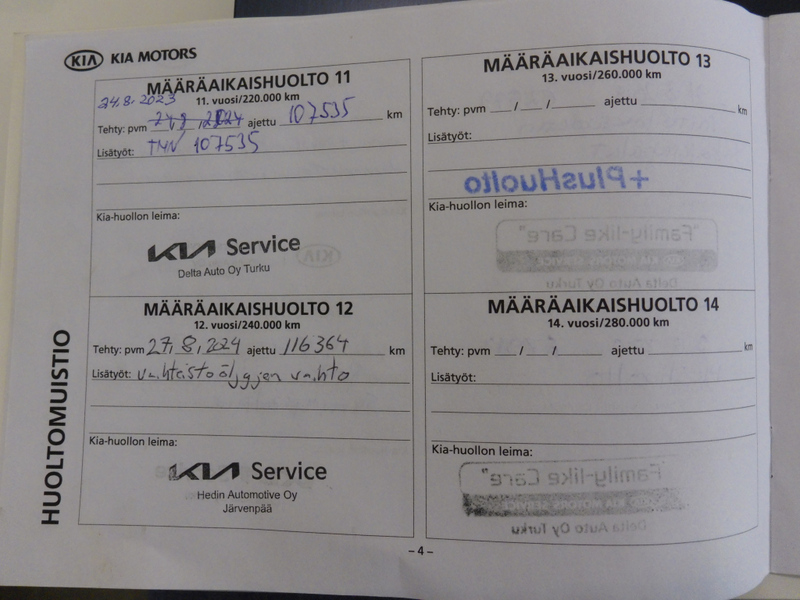 KIA KIA MOTORS
MÄÄRÄAIKAISHUOLTO 11
24.8.2023 11. vuosi/220.000 km
Tehty: pvm 24.8.2024 ajettu 107535 km
Lisätyöt: 107535
Kia-huollon leima:
KIA Service
Delta Auto Oy Turku
MÄÄRÄAIKAISHUOLTO 12
12. vuosi/240.000 km
Tehty: pvm 27.8.2024 ajettu 116364 km
Lisätyöt: vaihteistoöljyjen vaihto
Kia-huollon leima:
KIA Service
Hedin Automotive Oy
Järvenpää
MÄÄRÄAIKAISHUOLTO 13
13. vuosi/260.000 km
Tehty: pvm / / ajettu km
Lisätyöt:
+PlusHuolto
Kia-huollon leima:
"Family-like Care"
KIA MOTORS SERVICE
Delta Auto Oy Turku
MÄÄRÄAIKAISHUOLTO 14
14. vuosi/280.000 km
Tehty: pvm / / ajettu km
Lisätyöt:
Kia-huollon leima:
"Family-like Care"
KIA MOTORS SERVICE
Delta Auto Oy Turku
HUOLTOMUISTIO
– 4 –